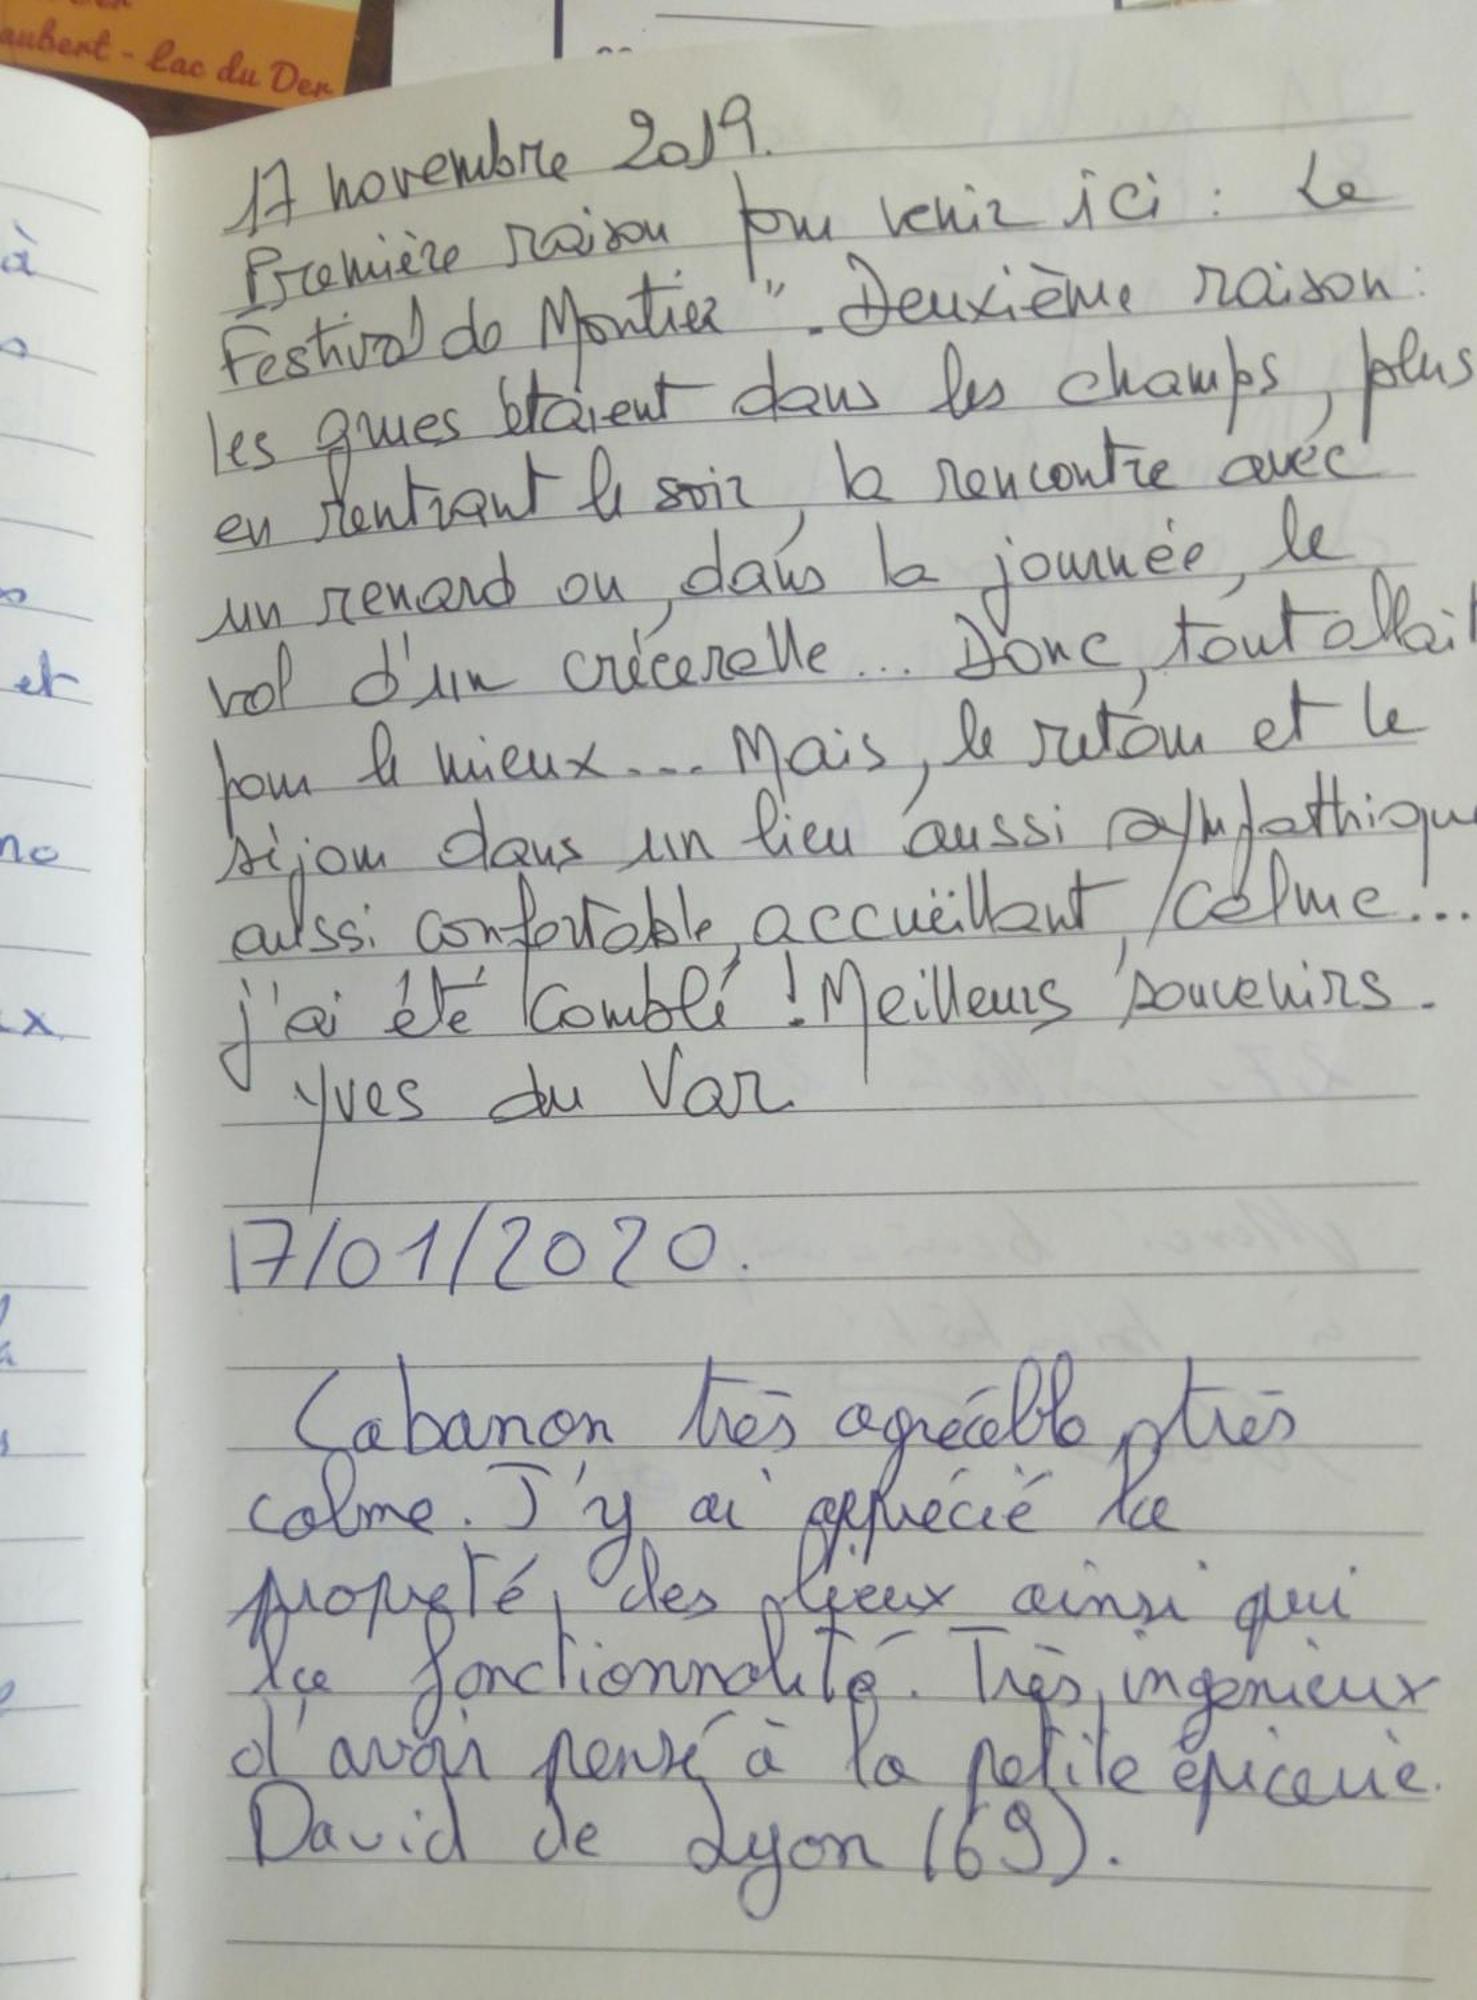 aubert - Lac du Der
17 novembre 2019.
Première raison pour venir ici : Le
Festival de Montier". Deuxième raison :
les grues étaient dans les champs, plus
en rentrant le soir, la rencontre avec
un renard ou, dans la journée, le
vol d'un crécerelle... Donc, tout allait
pour le mieux.... Mais, le retour et le
séjour dans un lieu aussi sympathique
aussi confortable, accueillant, calme...
j'ai été comblé ! Meilleurs souvenirs.
Yves du Var
17/01/2020.
Cabanon très agréable, très
calme. J'y ai apprécié la
propreté, des lieux ainsi qui
la fonctionnalité. Très ingenieux
d'avoir pensé à la petite épicerie.
David de Lyon (69).
à
et
ne
x